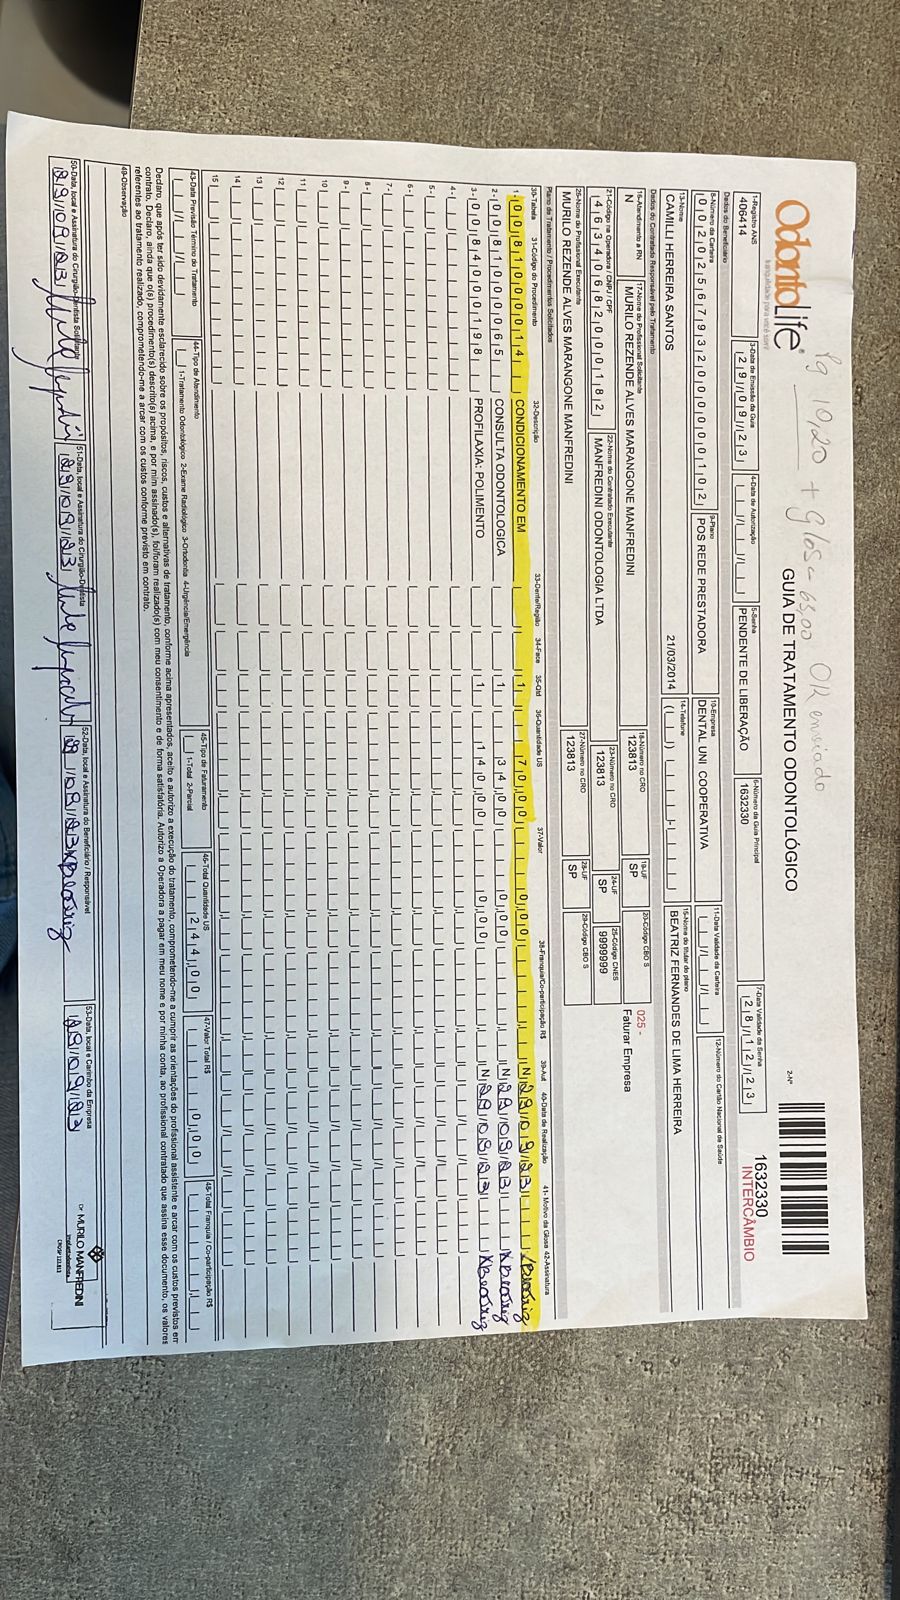 Pg 10,20 + glosa 63,00 OK enviado
OdontoLife®
tranquilidade para você sorrir
GUIA DE TRATAMENTO ODONTOLÓGICO
2-Nº
1632330
INTERCÂMBIO
1-Registro ANS
406414
3-Data de Emissão da Guia
29/09/23
4-Data de Autorização
5-Senha
PENDENTE DE LIBERAÇÃO
6-Número da Guia Principal
1632330
7-Data Validade da Senha
28/12/23
Dados do Beneficiário
8-Número da Carteira
00202567932000000102
9-Plano
POS REDE PRESTADORA
10-Empresa
DENTAL UNI COOPERATIVA
11-Data Validade da Carteira
12-Número do Cartão Nacional de Saúde
13-Nome
CAMILLI HERREIRA SANTOS
21/03/2014
14-Telefone
15-Nome do titular do plano
BEATRIZ FERNANDES DE LIMA HERREIRA
Dados do Contratado Responsável pelo Tratamento
16-Atendimento a RN
N
17-Nome do Profissional Solicitante
MURILO REZENDE ALVES MARANGONE MANFREDINI
18-Número no CRO
123813
19-UF
SP
20-Código CBO S
025 -
Faturar Empresa
21-Código na Operadora / CNPJ / CPF
46340682000182
22-Nome do Contratado Executante
MANFREDINI ODONTOLOGIA LTDA
23-Número no CRO
123813
24-UF
SP
25-Código CNES
9999999
26-Nome do Profissional Executante
MURILO REZENDE ALVES MARANGONE MANFREDINI
27-Número no CRO
123813
28-UF
SP
29-Código CBO S
Plano de Tratamento / Procedimentos Solicitados
30-Tabela 31-Código do Procedimento 32-Descrição 33-Dente/Região 34-Face 35-Qtd 36-Quantidade US 37-Valor 38-Franquia/Co-participação R$ 39-Aut 40-Data de Realização 41- Motivo da Glosa 42-Assinatura
1- 00 81000014 CONDICIONAMENTO EM 1 70,00 0,00 N 29/09/23 XBeatriz
2- 00 81000065 CONSULTA ODONTOLOGICA 1 34,00 0,00 N 29/09/23 XBeatriz
3- 00 84000198 PROFILAXIA: POLIMENTO 1 140,00 0,00 N 29/09/23 XBeatriz
4-
5-
6-
7-
8-
9-
10
11
12
13
14
15
43-Data Previsão Término do Tratamento
44-Tipo de Atendimento
1-Tratamento Odontológico 2-Exame Radiológico 3-Ortodontia 4-Urgência/Emergência
45-Tipo de Faturamento
1-Total 2-Parcial
46-Total Quantidade US
244,00
47-Valor Total R$
0,00
48-Total Franquia / Co-participação R$
Declaro, que após ter sido devidamente esclarecido sobre os propósitos, riscos, custos e alternativas de tratamento, conforme acima apresentados, aceito e autorizo a execução do tratamento, comprometendo-me a cumprir as orientações do profissional assistente e arcar com os custos previstos em
contrato. Declaro, ainda que o(s) procedimento(s) descrito(s) acima, e por mim assinado(s), foi/foram realizado(s) com meu consentimento e de forma satisfatória. Autorizo a Operadora a pagar em meu nome e por minha conta, ao profissional contratado que assina esse documento, os valores
referentes ao tratamento realizado, comprometendo-me a arcar com os custos conforme previsto em contrato.
49-Observação
50-Data, local e Assinatura do Cirurgião-Dentista Solicitante
29/09/23
51-Data, local e Assinatura do Cirurgião-Dentista
29/09/23
52-Data, local e Assinatura do Beneficiário / Responsável
29/09/23 XBeatriz
53-Data, local e Carimbo da Empresa
29/09/23
Dr. MURILO MANFREDINI
Implantodontista
CROSP 123.813